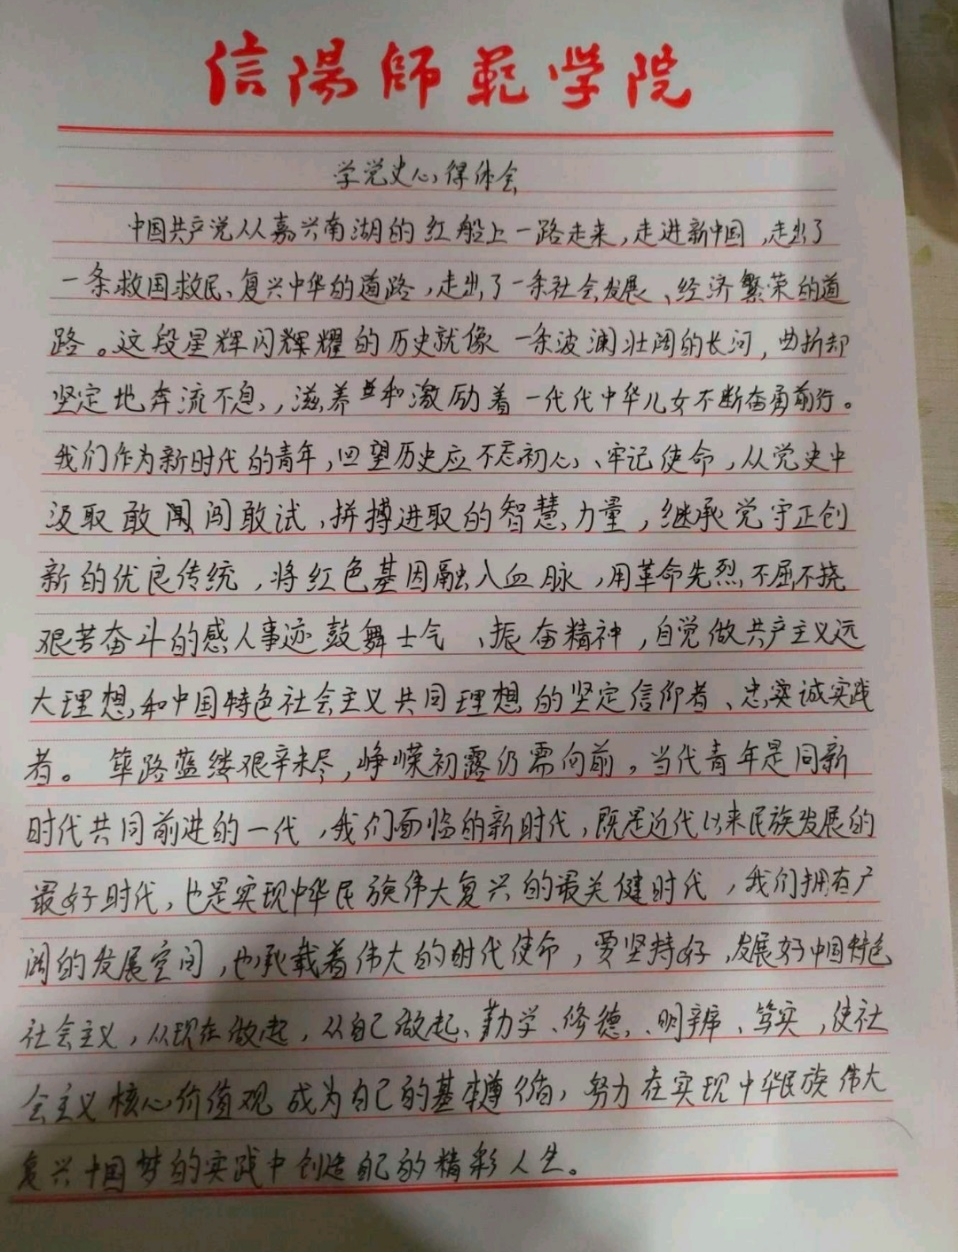 信陽師範学院
学党史心得体会
中国共产党从嘉兴南湖的红船上一路走来,走进新中国,走出了
一条救国救民、复兴中华的道路,走出了一条社会发展、经济繁荣的道
路。这段星辉闪辉耀的历史就像一条波澜壮阔的长河,曲折却
坚定地奔流不息,滋养并和激励着一代代中华儿女不断奋勇前行。
我们作为新时代的青年,回望历史应不忘初心、牢记使命,从党史中
汲取敢闯闯敢试,拼搏进取的智慧力量,继承党守正创
新的优良传统,将红色基因融入血脉,用革命先烈不屈不挠
艰苦奋斗的感人事迹鼓舞士气、振奋精神,自觉做共产主义远
大理想和中国特色社会主义共同理想的坚定信仰者、忠实诚实践
者。筚路蓝缕艰辛未尽,峥嵘初露仍需向前。当代青年是同新
时代共同前进的一代,我们面临的新时代,既是近代以来民族发展的
最好时代,也是实现中华民族伟大复兴的最关健时代,我们拥有广
阔的发展空间,也承载着伟大的时代使命,要坚持好,发展好中国特色
社会主义,从现在做起,从自己做起、勤学、修德、明辨、笃实,使社
会主义核心价值观成为自己的基本遵循,努力在实现中华民族伟大
复兴中国梦的实践中创造自己的精彩人生。